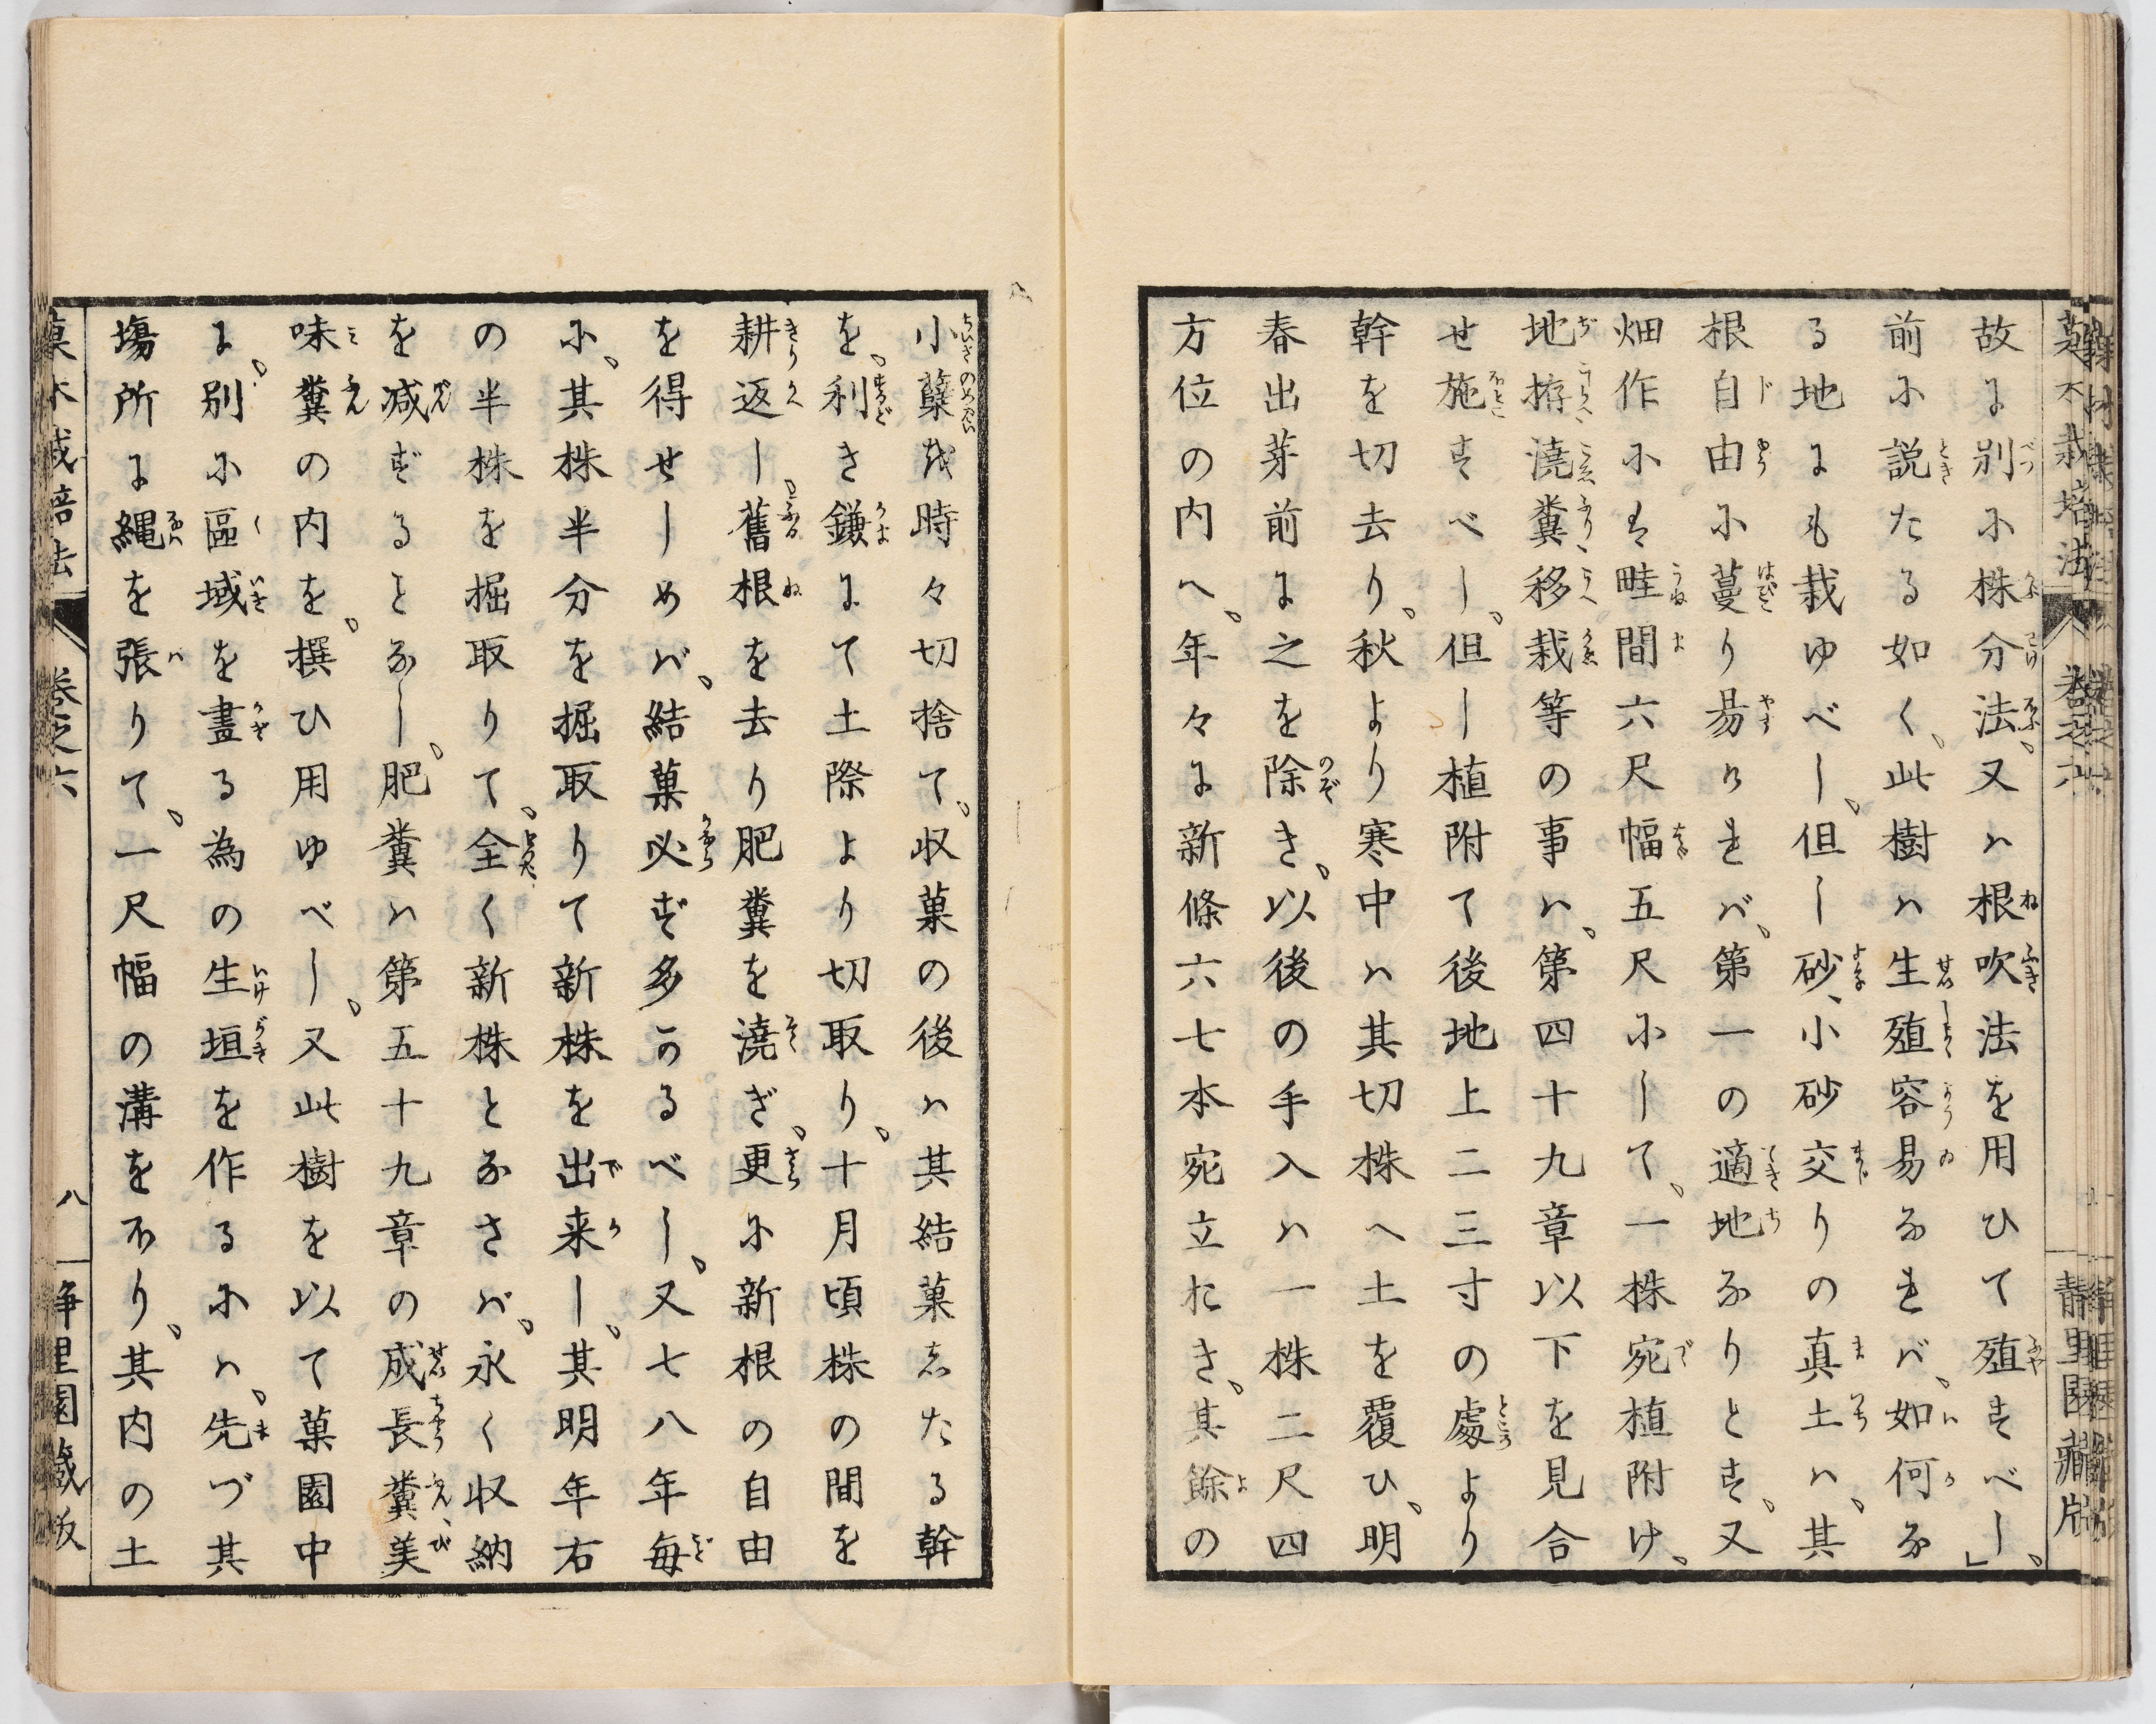 故に別に株分法、又ハ根吹法を用ひて殖すべし、」
前に説たる如く、此樹ハ生殖容易なれバ、如何な
る地にも栽ゆべし、但し砂、小砂交りの真土ハ、其
根自由に蔓り易けれバ、第一の適地なりとす、又
畑作にハ畦間六尺幅五尺にして、一株宛植附け、
地拵澆糞移栽等の事ハ、第四十九章以下を見合
せ施すべし、但し植附て後地上二三寸の處より
幹を切去り、秋より寒中ハ其切株へ土を覆ひ、明
春出芽前に之を除き、以後の手入ハ一株二尺四
方位の内へ、年々に新條六七本宛立おき、其餘の
小蘖を時々切捨て、収菓の後ハ其結菓したる幹
を、利き鎌にて土際より切取り、十月頃株の間を
耕返し、舊根を去り肥糞を澆ぎ、更に新根の自由
を得せしめバ、結菓必ず多かるべし、又七八年毎
に、其株半分を掘取りて新株を出来し、其明年右
の半株を掘取りて、全く新株となさバ、永く収納
を減ずることなし、肥糞ハ第五十九章の成長糞美
味糞の内を、撰ひ用ゆべし、又此樹を以て菓園中
に、別に區域を畫る為の生垣を作るにハ、先づ其
場所に縄を張りて、一尺幅の溝を不り、其内の土
菓木栽培法 卷之六 八 静里園藏版